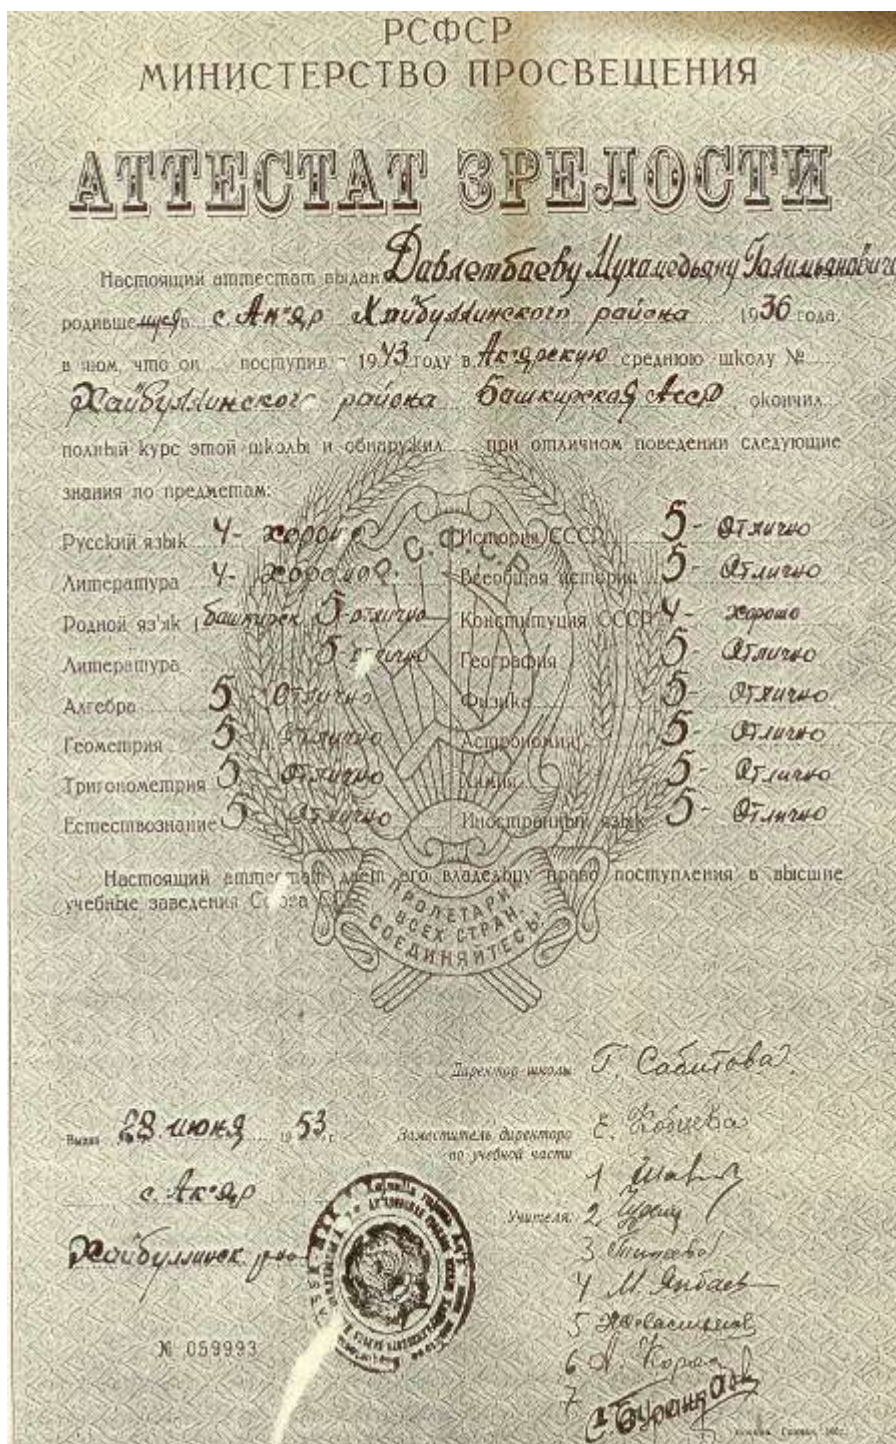 РСФСР
МИНИСТЕРСТВО ПРОСВЕЩЕНИЯ
АТТЕСТАТ ЗРЕЛОСТИ
Настоящий аттестат выдан Давлетбаеву Мухамедьяну Галимьяновичу
родившемуся в с. Ак'яр Хайбуллинского района 1936 года,
в том, что он поступив в 1943 году в Ак'ярскую среднюю школу №
Хайбуллинского района Башкирская АССР, окончил
полный курс этой школы и обнаружил при отличном поведении следующие
знания по предметам:
Русский язык 4- хорошо
Литература 4- хорошо
Родной яз'ык (башкирск 5 отлично
Литература 5 отлично
Алгебра 5 отлично
Геометрия 5 отлично
Тригонометрия 5 отлично
Естествознание 5- отлично
История СССР 5- отлично
Всеобщая история 5- отлично
Конституция СССР 4- хорошо
География 5- отлично
Физика 5- отлично
Астрономия 5- отлично
Химия 5- отлично
Иностранный язык 5- отлично
Р.С.Ф.С.Р.
Настоящий аттестат дает его владельцу право поступления в высшие
учебные заведения Союза ССР
ПРОЛЕТАРИИ
ВСЕХ СТРАН,
СОЕДИНЯЙТЕСЬ!
Директор школы Г. Сабитова
Выдан 28 июня 1953 г.
с. Ак'яр
Хайбуллинск
№ 059993
Заместитель директора
по учебной части Е.
Учителя:
1
2
3
4 М. Янбаев
5
6 А.
7